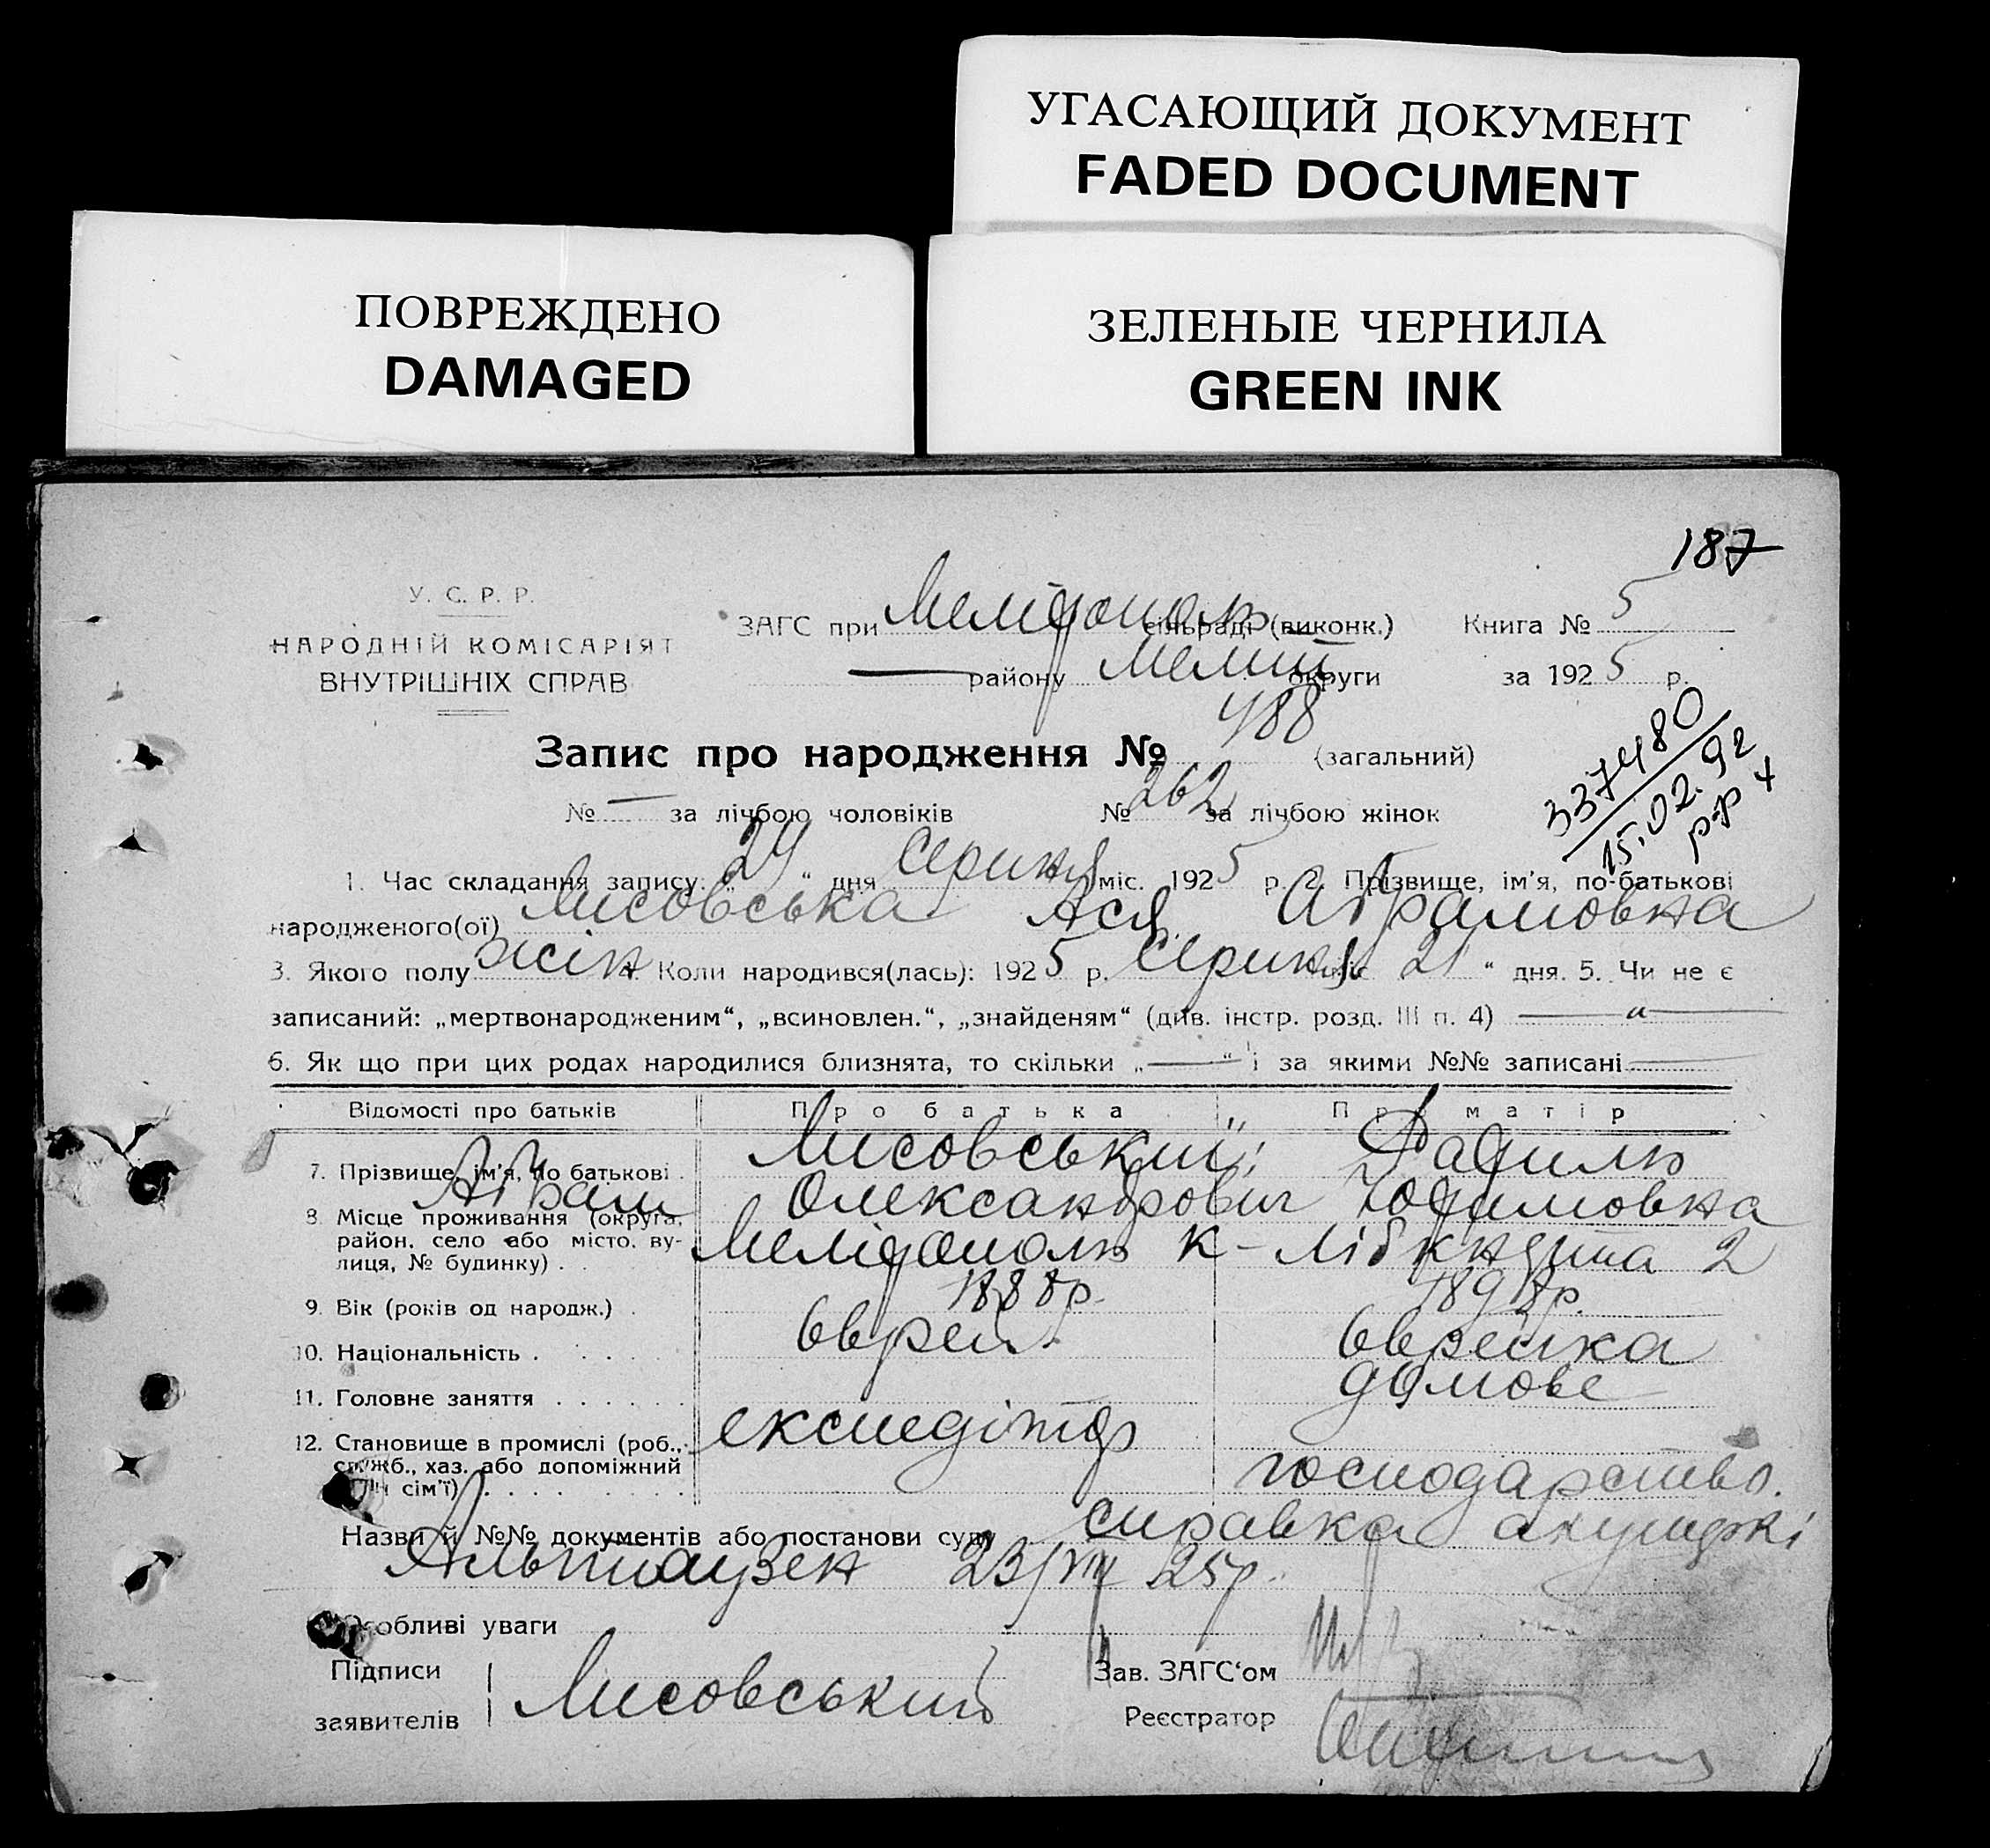 УГАСАЮЩИЙ ДОКУМЕНТ
FADED DOCUMENT
ПОВРЕЖДЕНО
DAMAGED
ЗЕЛЕНЫЕ ЧЕРНИЛА
GREEN INK
187
У. С. Р. Р.
НАРОДНІЙ КОМІСАРІЯТ
ВНУТРІШНІХ СПРАВ
ЗАГС при Мелідополь сільраді (виконк.) Книга № 5
— району Мелит округи за 1925 р.
Запис про народження № 488 (загальний)
337480
15.02.92
№ — за лічбою чоловіків № 262 за лічбою жінок
1. Час складання запису: „24“ дня Серпня міс. 1925 р. 2. Прізвище, ім'я, по-батькові
народженого(ої) Лисовська Ася Абрамовна
3. Якого полу жін 4. Коли народився(лась): 1925 р. Серпня міс. 21 “ дня. 5. Чи не є
записаний: „мертвонародженим“, „всиновлен.“, „знайденям“ (див. інстр. розд. III п. 4) — „ —
6. Як що при цих родах народилися близнята, то скільки „—“ і за якими №№ записані —
Відомості про батьків Про батька Про матір
7. Прізвище, ім'я, по батькові . Лисовський Абрам Олександрович
8. Місце проживання (округа, район, село або місто, вулиця, № будинку) . . Мелідополь К-Лібкнехта 2
9. Вік (років од народж.) . 1888р. 1898р.
10. Національність . . . . Єврей. Єврейка
11. Головне заняття . . . . . . експедітор домове
12. Становище в промислі (роб., служб., хаз. або допоміжний член сім'ї) . . . . господарство.
Назви й №№ документів або постанови суду справка акушерки
Альтгаузен 23/VIII 25р.
Особливі уваги
Підписи Зав. ЗАГС‘ом
заявителів Лисовський Реєстратор